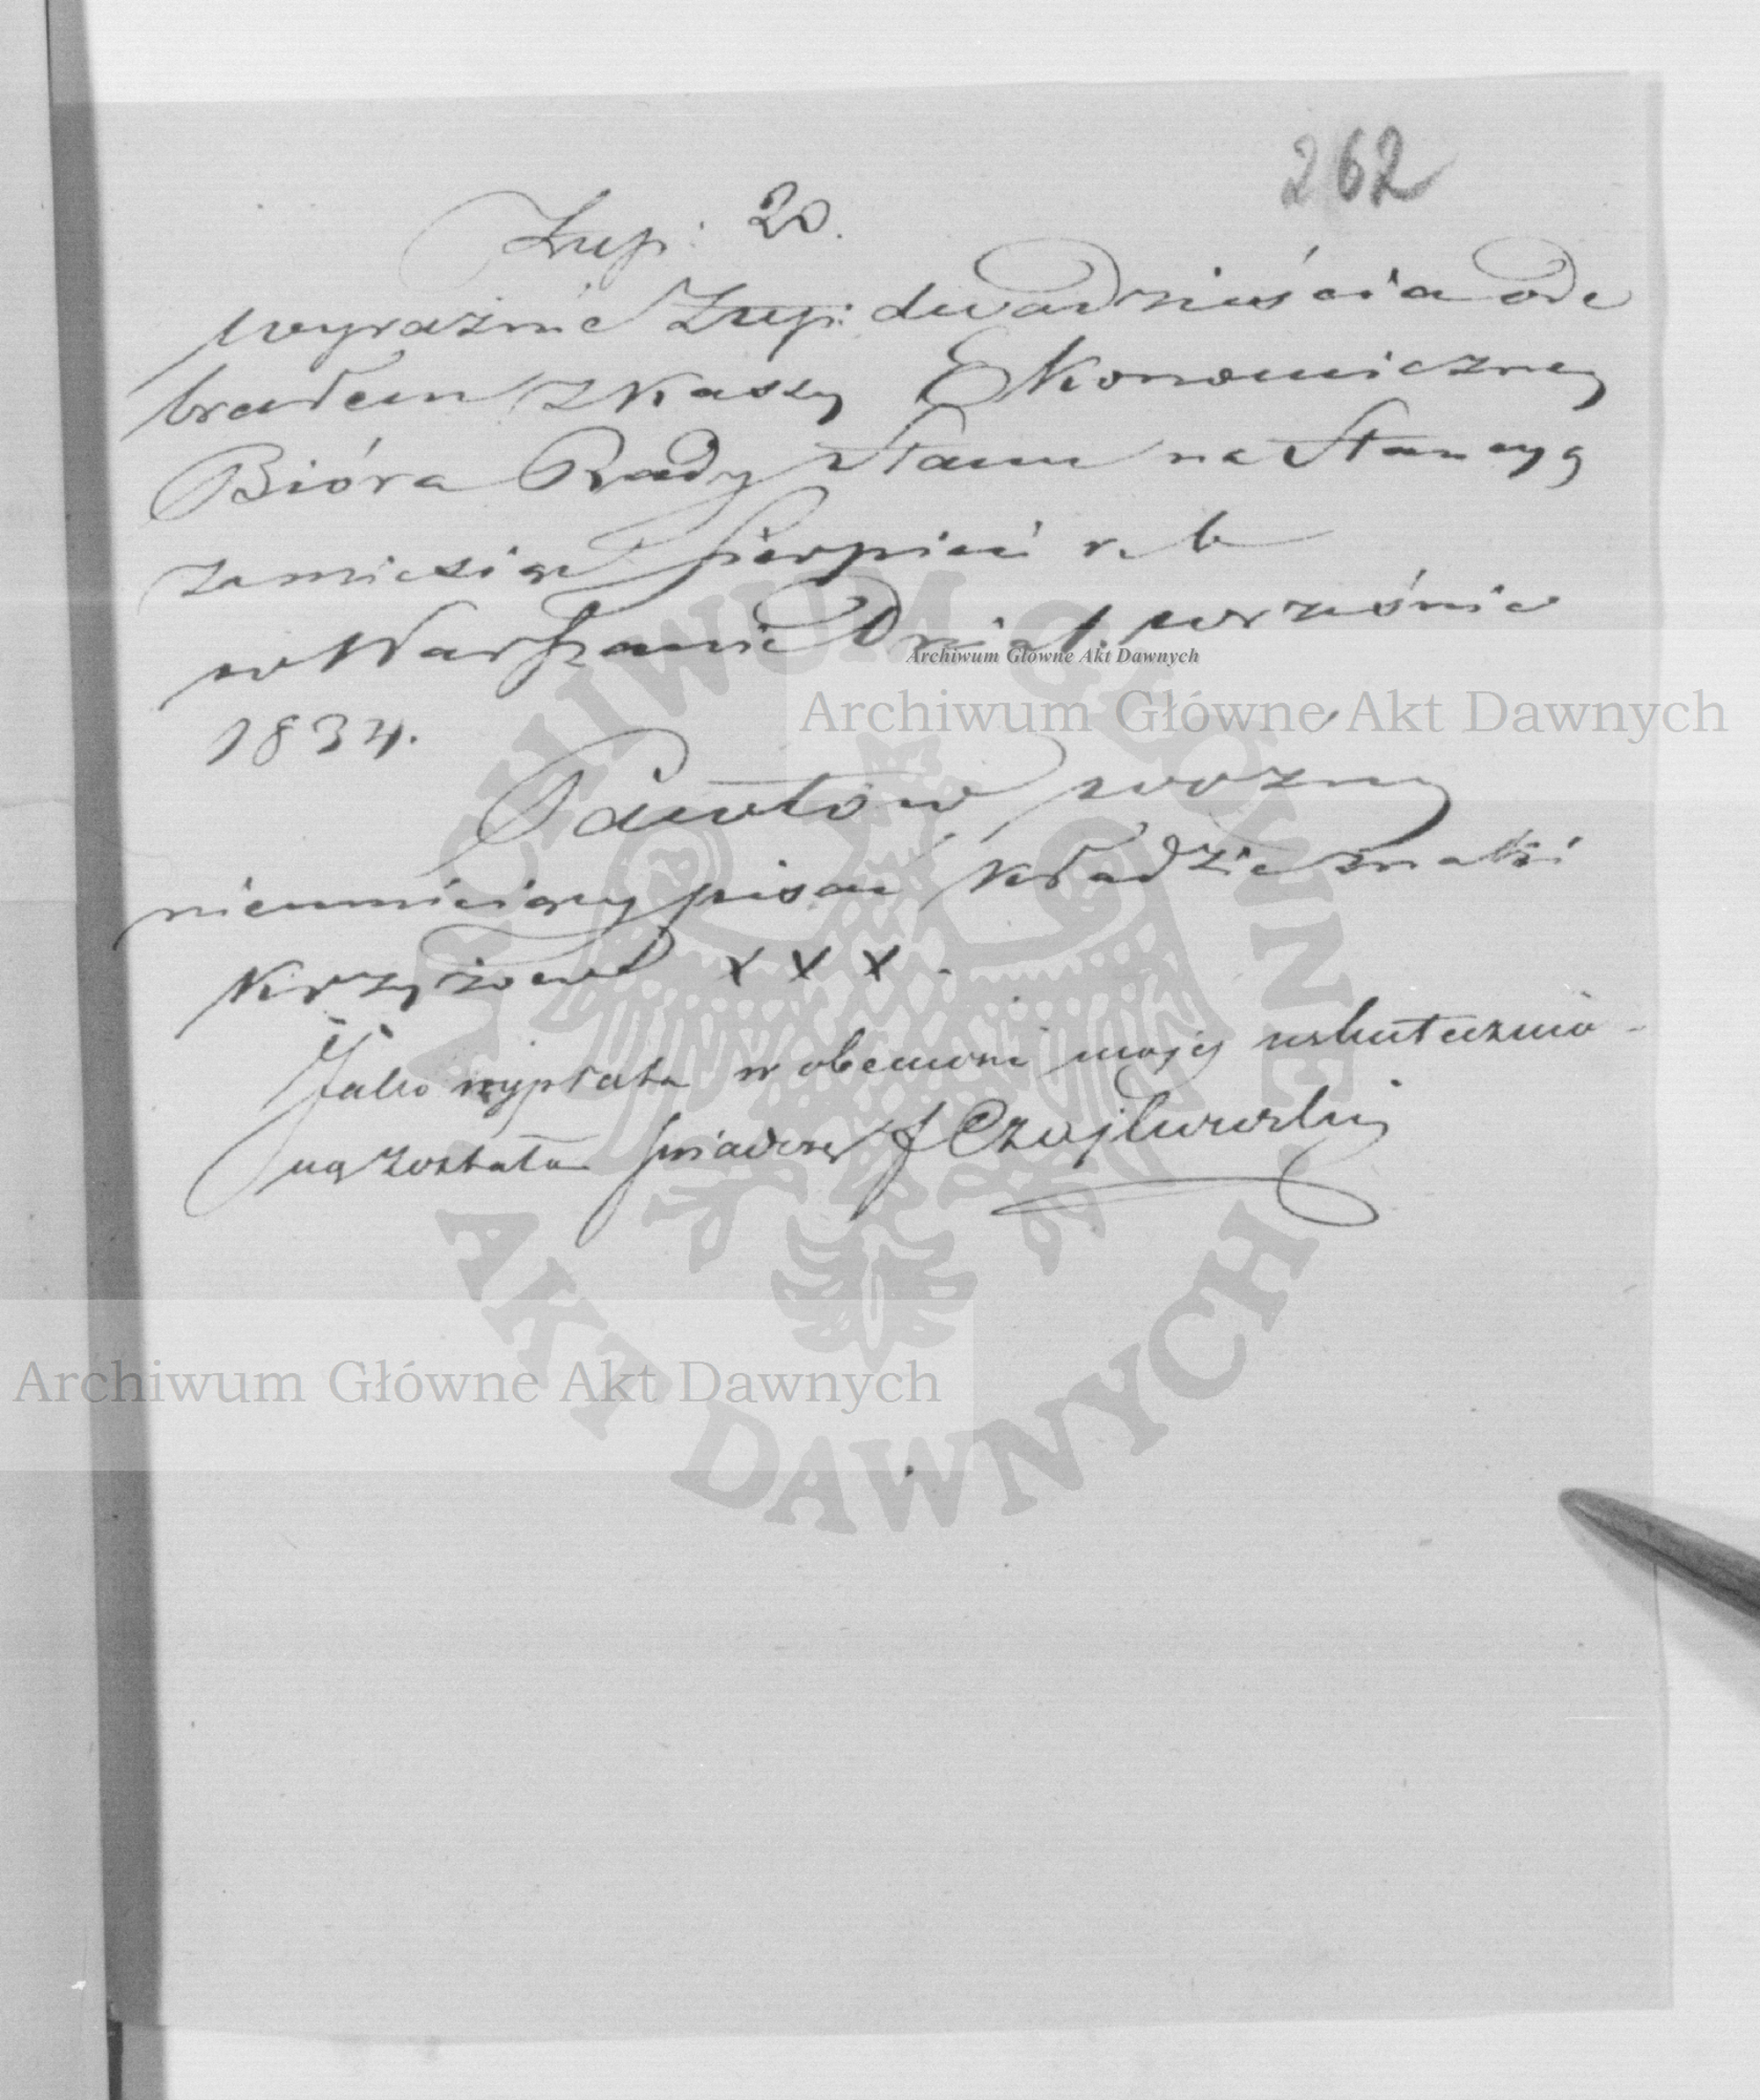 262
Złup: 20.
wyraźnie Złup: dwadzieścia ode
brałem z Kassy Ekonomiczney
Bióra Rady Stanu na Stancyą
za miesiąc Sierpień r. b
w Warszawie Dnia 1. wrzśnia
1834.
Pawłów wozny
nieumieiący pisać kładzie znaki
krzyżowe x x x.
Jako wypłata w obecności mojej uskutecznio-
ną została świadczę J Czajkowski
Archiwum Główne Akt Dawnych
Archiwum Główne Akt Dawnych
Archiwum Główne Akt Dawnych
ARCHIWUM GŁÓWNE
AKT DAWNYCH